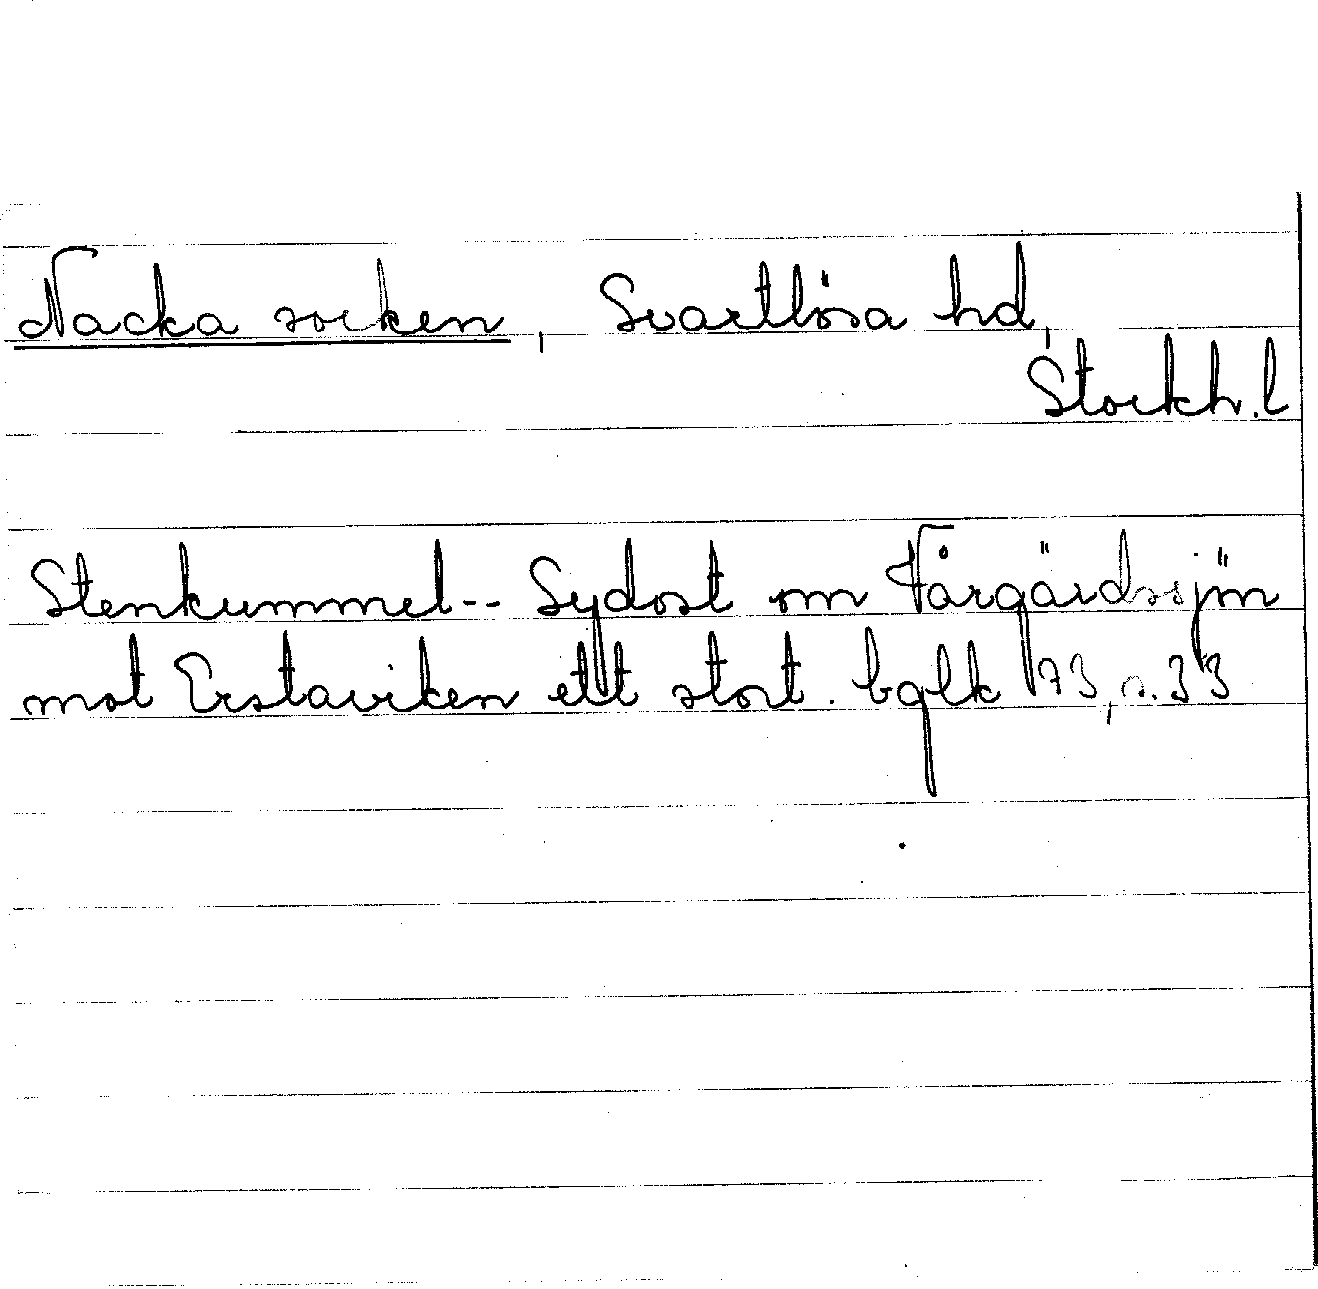 Nacka socken, Svartlösa hd,
Stockh. l
Stenkummel-- Sydost om Fårgärdssjön
mot Erstaviken ett stort. bglk 173, s. 33